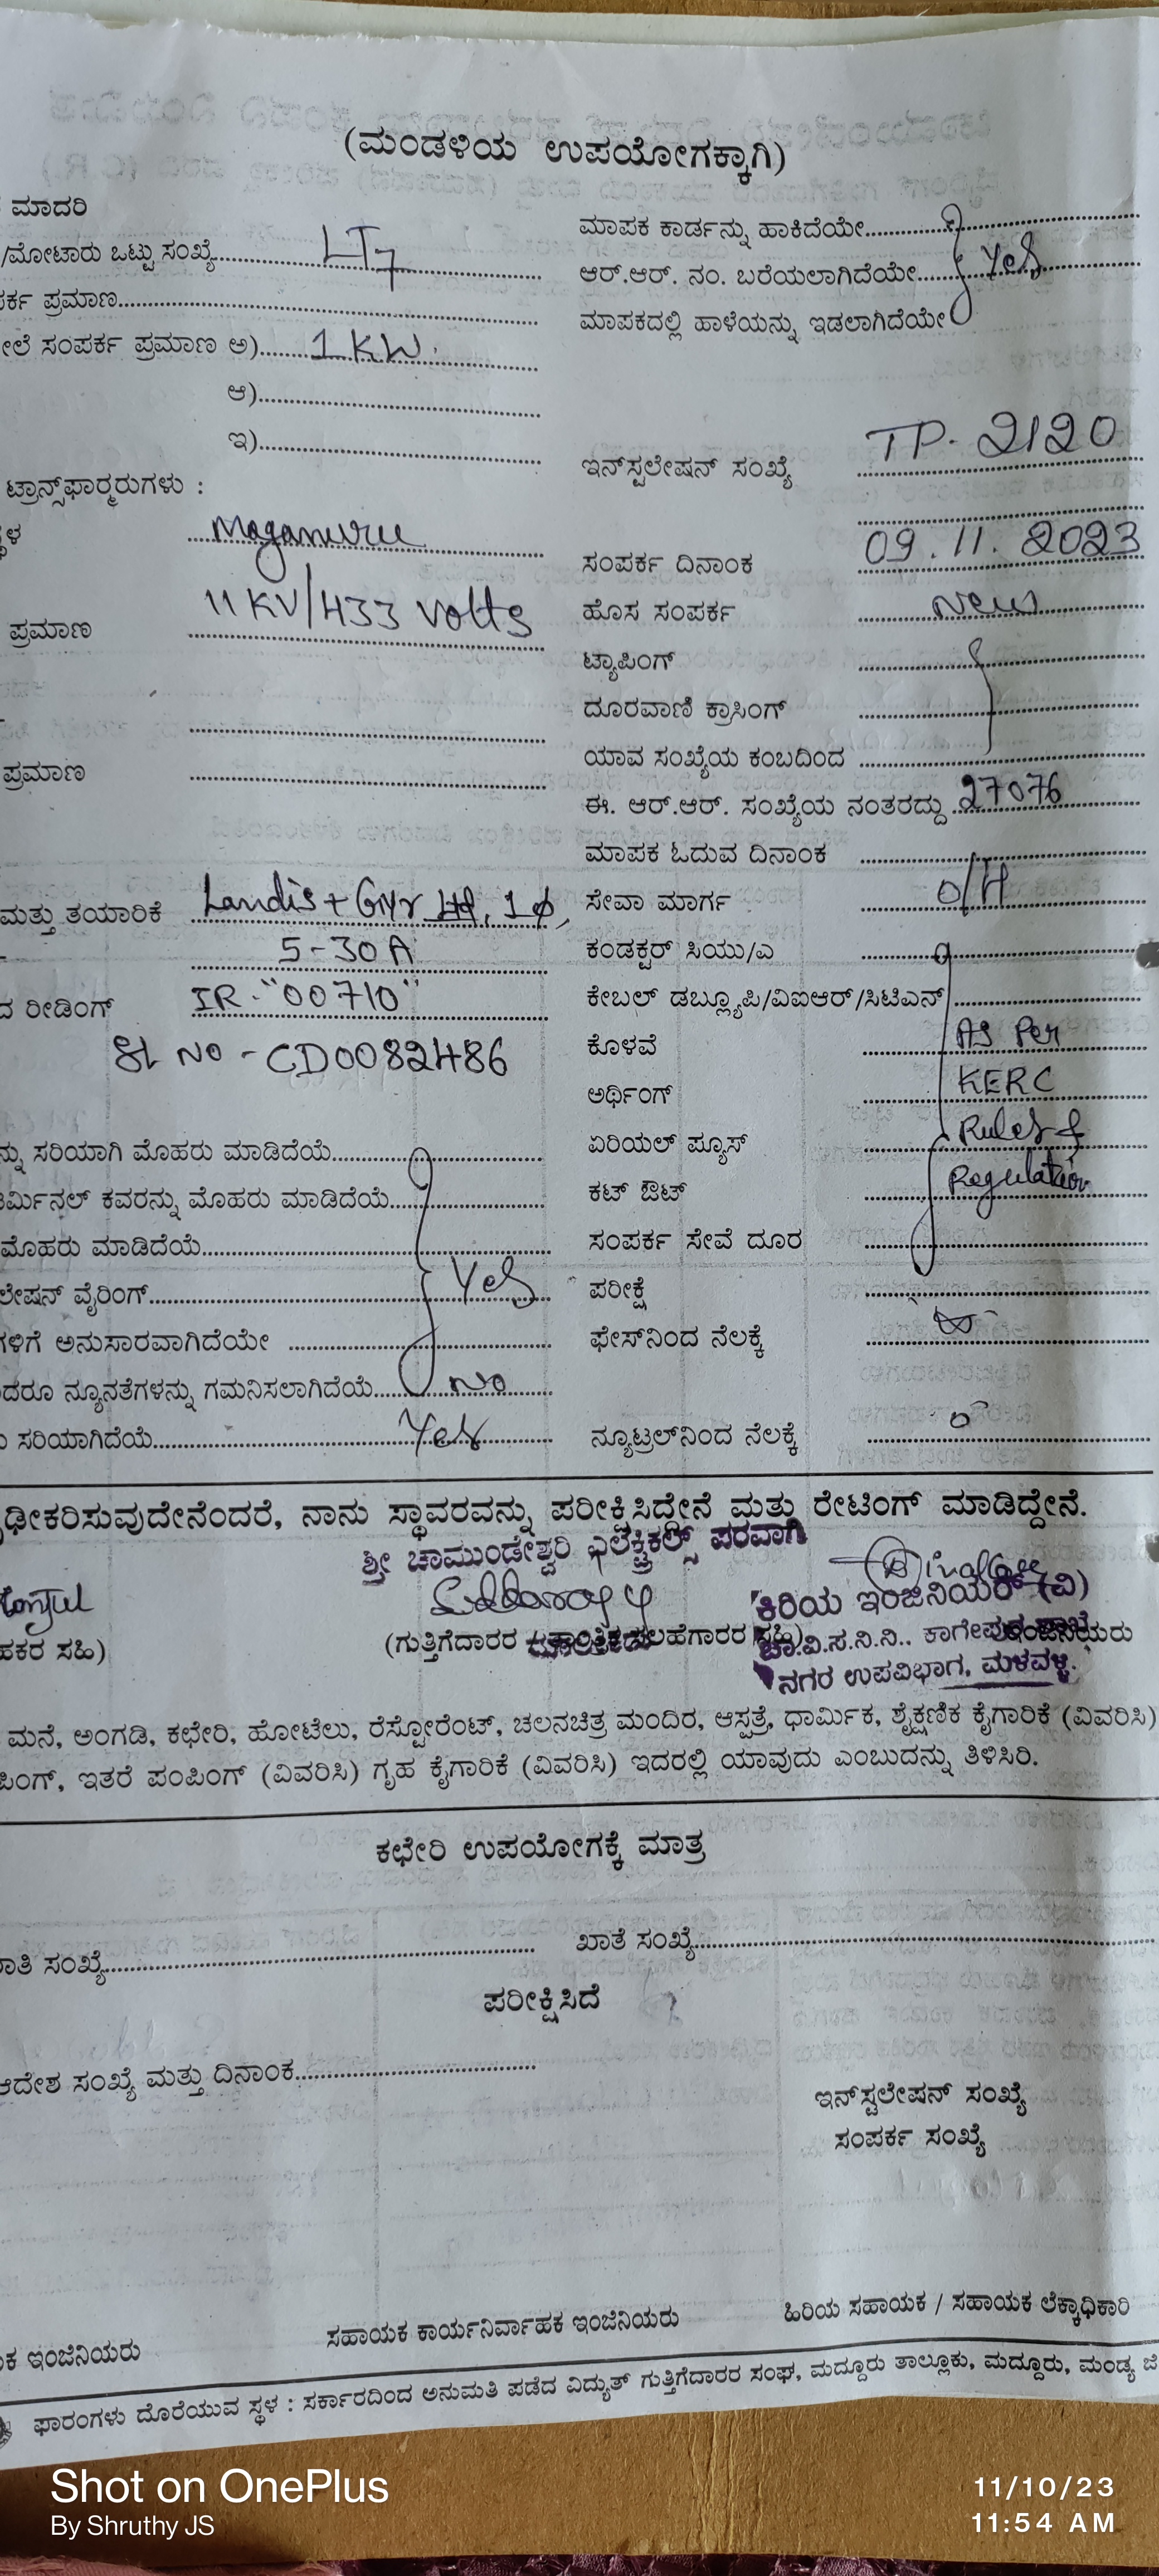 (ಮಂಡಳಿಯ ಉಪಯೋಗಕ್ಕಾಗಿ)
ಮಾದರಿ
/ಮೋಟಾರು ಒಟ್ಟು ಸಂಖ್ಯೆ LT7
ರ್ಕ ಪ್ರಮಾಣ
ಸಂಪರ್ಕ ಪ್ರಮಾಣ ಅ) 1 KW.
ಆ)
ಇ)
ಟ್ರಾನ್ಸ್‌ಫಾರ್ಮರುಗಳು :
ಪ್ರಮಾಣ 11 KV/433 Volts
ಪ್ರಮಾಣ
ಮತ್ತು ತಯಾರಿಕೆ Landis + Gyr Ltd, 1ϕ,
5-30A
ದ ರೀಡಿಂಗ್ IR-"00710"
Sl No - CD0082486
ನ್ನು ಸರಿಯಾಗಿ ಮೊಹರು ಮಾಡಿದೆಯೆ
ರ್ಮಿನಲ್ ಕವರನ್ನು ಮೊಹರು ಮಾಡಿದೆಯೆ
ಮೊಹರು ಮಾಡಿದೆಯೆ
ಲೇಷನ್ ವೈರಿಂಗ್ Yes
ಗಳಿಗೆ ಅನುಸಾರವಾಗಿದೆಯೇ
ದರೂ ನ್ಯೂನತೆಗಳನ್ನು ಗಮನಿಸಲಾಗಿದೆಯೆ No
ಸರಿಯಾಗಿದೆಯೆ Yes
ಮಾಪಕ ಕಾರ್ಡನ್ನು ಹಾಕಿದೆಯೇ
ಆರ್.ಆರ್. ನಂ. ಬರೆಯಲಾಗಿದೆಯೇ Yes
ಮಾಪಕದಲ್ಲಿ ಹಾಳೆಯನ್ನು ಇಡಲಾಗಿದೆಯೇ
ಇನ್‌ಸ್ಟಲೇಷನ್ ಸಂಖ್ಯೆ TP- 2120
ಸಂಪರ್ಕ ದಿನಾಂಕ 09.11.2023
ಹೊಸ ಸಂಪರ್ಕ New
ಟ್ಯಾಪಿಂಗ್
ದೂರವಾಣಿ ಕ್ರಾಸಿಂಗ್
ಯಾವ ಸಂಖ್ಯೆಯ ಕಂಬದಿಂದ
ಈ. ಆರ್.ಆರ್. ಸಂಖ್ಯೆಯ ನಂತರದ್ದು 27076
ಮಾಪಕ ಓದುವ ದಿನಾಂಕ
ಸೇವಾ ಮಾರ್ಗ O/H
ಕಂಡಕ್ಟರ್ ಸಿಯು/ಎ
ಕೇಬಲ್ ಡಬ್ಲ್ಯೂಪಿ/ವಿಐಆರ್/ಸಿಟಿಎಸ್
ಕೊಳವೆ As Per
ಅರ್ಥಿಂಗ್ KERC
ಏರಿಯಲ್ ಪ್ಯೂಸ್ Rules &
ಕಟ್ ಔಟ್ Regulation
ಸಂಪರ್ಕ ಸೇವೆ ದೂರ
ಪರೀಕ್ಷೆ
ಫೇಸ್‌ನಿಂದ ನೆಲಕ್ಕೆ
ನ್ಯೂಟ್ರಲ್‌ನಿಂದ ನೆಲಕ್ಕೆ
ಢೀಕರಿಸುವುದೇನೆಂದರೆ, ನಾನು ಸ್ಥಾವರವನ್ನು ಪರೀಕ್ಷಿಸಿದ್ದೇನೆ ಮತ್ತು ರೇಟಿಂಗ್ ಮಾಡಿದ್ದೇನೆ.
ಶ್ರೀ ಚಾಮುಂಡೇಶ್ವರಿ ಎಲೆಕ್ಟ್ರಿಕಲ್ಸ್ ಪರವಾಗಿ
ಕಿರಿಯ ಇಂಜಿನಿಯರ್ (ವಿ)
ಹಕರ ಸಹಿ) (ಗುತ್ತಿಗೆದಾರರ ಸಹಿ)
ಚಾ.ವಿ.ಸ.ನಿ.ನಿ.. ಕಾಗೇಪುರ ಶಾಖೆ
ನಗರ ಉಪವಿಭಾಗ, ಮಳವಳ್ಳಿ.
ಮನೆ, ಅಂಗಡಿ, ಕಛೇರಿ, ಹೋಟೆಲು, ರೆಸ್ಟೋರೆಂಟ್, ಚಲನಚಿತ್ರ ಮಂದಿರ, ಆಸ್ಪತ್ರೆ, ಧಾರ್ಮಿಕ, ಶೈಕ್ಷಣಿಕ ಕೈಗಾರಿಕೆ (ವಿವರಿಸಿ)
ಪಿಂಗ್, ಇತರೆ ಪಂಪಿಂಗ್ (ವಿವರಿಸಿ) ಗೃಹ ಕೈಗಾರಿಕೆ (ವಿವರಿಸಿ) ಇದರಲ್ಲಿ ಯಾವುದು ಎಂಬುದನ್ನು ತಿಳಿಸಿರಿ.
ಕಛೇರಿ ಉಪಯೋಗಕ್ಕೆ ಮಾತ್ರ
ಸಂಖ್ಯೆ ಖಾತೆ ಸಂಖ್ಯೆ
ಪರೀಕ್ಷಿಸಿದೆ
ಆದೇಶ ಸಂಖ್ಯೆ ಮತ್ತು ದಿನಾಂಕ
ಇನ್‌ಸ್ಟಲೇಷನ್ ಸಂಖ್ಯೆ
ಸಂಪರ್ಕ ಸಂಖ್ಯೆ
ಕ ಇಂಜಿನಿಯರು ಸಹಾಯಕ ಕಾರ್ಯನಿರ್ವಾಹಕ ಇಂಜಿನಿಯರು ಹಿರಿಯ ಸಹಾಯಕ / ಸಹಾಯಕ ಲೆಕ್ಕಾಧಿಕಾರಿ
ಫಾರಂಗಳು ದೊರೆಯುವ ಸ್ಥಳ : ಸರ್ಕಾರದಿಂದ ಅನುಮತಿ ಪಡೆದ ವಿದ್ಯುತ್ ಗುತ್ತಿಗೆದಾರರ ಸಂಘ, ಮದ್ದೂರು ತಾಲ್ಲೂಕು, ಮದ್ದೂರು, ಮಂಡ್ಯ ಜಿ
Shot on OnePlus
By Shruthy JS
11/10/23
11:54 AM